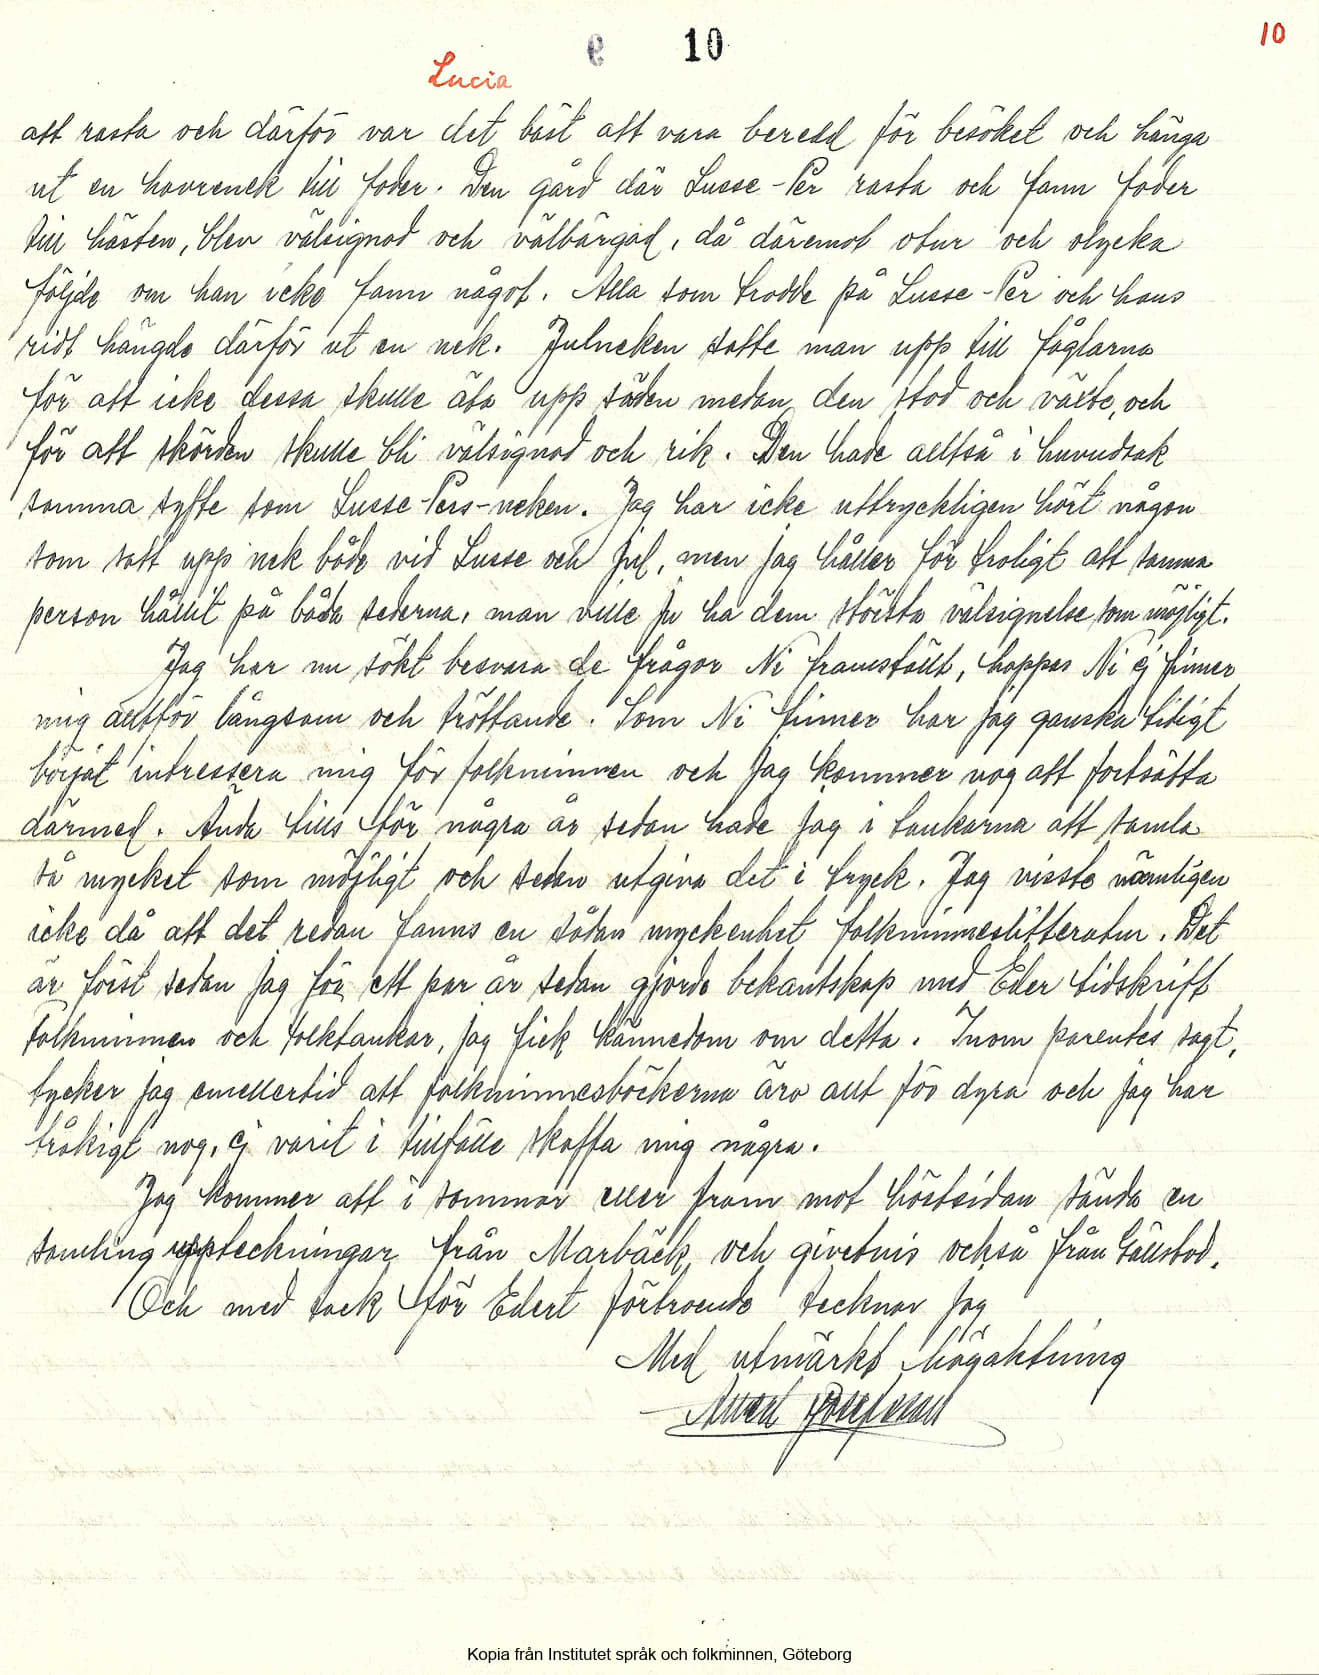 e 10
10
Lucia
att rasta och därför var det bäst att vara beredd för besöket och hänga
ut en havrenek till foder. Den gård där Lusse-Per rasta och fann foder
till hästen, blev välsignad och välbärgad, då däremot otur och olycka
följde om han icke fann något. Alla som trodde på Lusse-Per och hans
ridt hängde därför ut en nek. Julneken satte man upp till fåglarna
för att icke dessa skulle äta upp säden medan den stod och växte, och
för att skörden skulle bli välsignad och rik. Den hade alltså i huvudsak
samma syfte som Lusse-Pers-neken. Jag har icke uttryckligen hört någon
som satt upp nek både vid Lusse och jul, men jag håller för troligt att samma
person hållit på båda sederna, man ville ju ha dem största välsignelse som möjligt.
Jag har nu sökt besvara de frågor Ni framställt, hoppas Ni ej finner
mig alltför långsam och tröttande. Som Ni finner har jag ganska tidigt
börjat intressera mig för folkminnen och jag kommer nog att fortsätta
därmed. Ända tills för några år sedan hade jag i tankarna att samla
så mycket som möjligt och sedan utgiva det i tryck. Jag visste nämligen
icke då att det redan fanns en sådan myckenhet folkminneslitteratur. Det
är först sedan jag för ett par år sedan gjorde bekantskap med Eder tidskrift
Folkminnen och folktankar, jag fick kännedom om detta. Inom parentes sagt,
tycker jag emellertid att folkminnesböckerna äro allt för dyra och jag har
tråkigt nog, ej varit i tillfälle skaffa mig några.
Jag kommer att i sommar eller fram mot höstsidan sända en
samling uppteckningar från Marbäck och givetvis också från Gällstad.
Och med tack för Edert förtroende tecknar jag
Med utmärkt högaktning
Josefsson
Kopia från Institutet språk och folkminnen, Göteborg